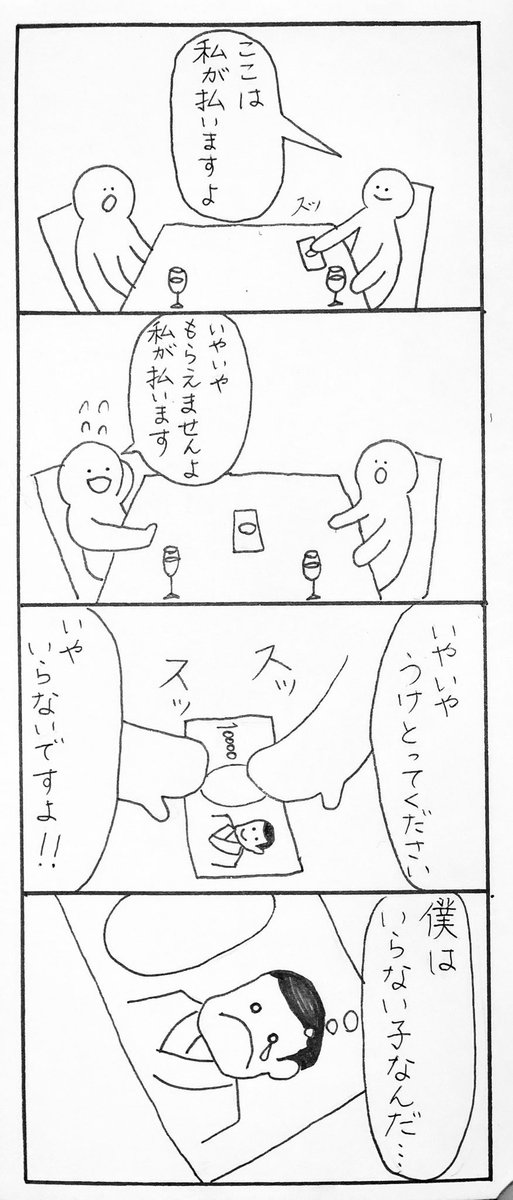 ここは
私が払いますよ
スッ
いやいや
もらえませんよ
私が払います
いやいや
うけとってください
スッ
スッ
10000
いや
いらないですよ!!
僕は
いらない子なんだ…